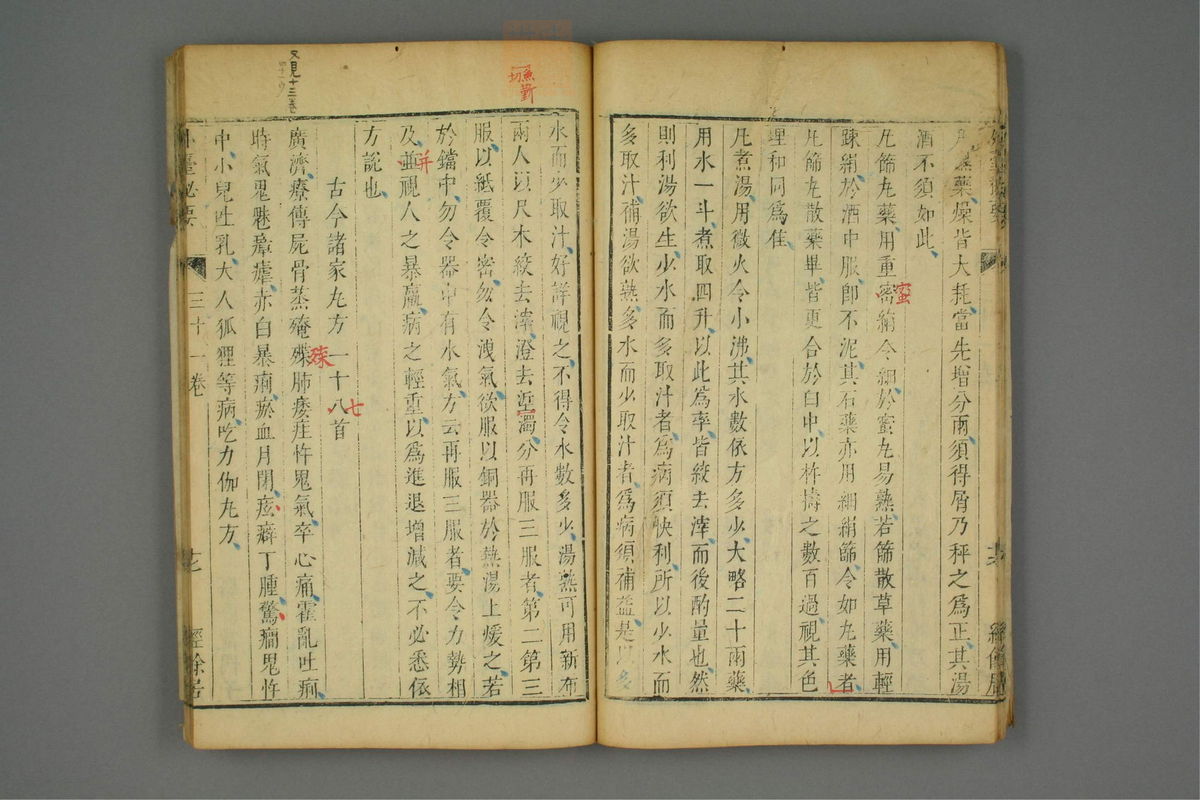 凡㷶藥燥皆大耗當先增分兩須得屑乃秤之爲正其湯
酒不須如此
凡篩丸藥用重密絹令細於蜜丸易熟若篩散草藥用輕
蜜
疎絹於酒中服卽不泥其石藥亦用細絹篩令如丸藥者
凡篩丸散藥畢皆更合於臼中以杵擣之數百過視其色
理和同爲佳
凡煮湯用微火令小沸其水數依方多少大略二十兩藥
用水一斗煮取四升以此爲率皆絞去滓而後酌量也然
則利湯欲生少水而多取汁者爲病須快利所以少水而
多取汁補湯欲熟多水而少取汁者爲病須補益是以多
水而少取汁好詳視之不得令水數多少湯熟可用新布
兩人以尺木絞去滓澄去垽濁分再服三服者第二第三
魚靳
切
服以紙覆令密勿令洩氣欲服以銅器於熱湯上煖之若
於鐺中勿令器中有水氣方云再服三服者要令力勢相
及並視人之暴羸病之輕重以爲進退增減之不必悉依
幷
方說也
古今諸家丸方一十八首
七
廣濟療傳屍骨蒸殗殜肺痿疰忤鬼氣卒心痛霍亂吐痢
殜
又見十三卷
時氣鬼魅瘴瘧赤白暴痢瘀血月閉痃癖丁腫驚癎鬼忤
中小兒吐乳大人狐狸等病吃力伽丸方
外臺祕要
三十一卷
十七
經餘居